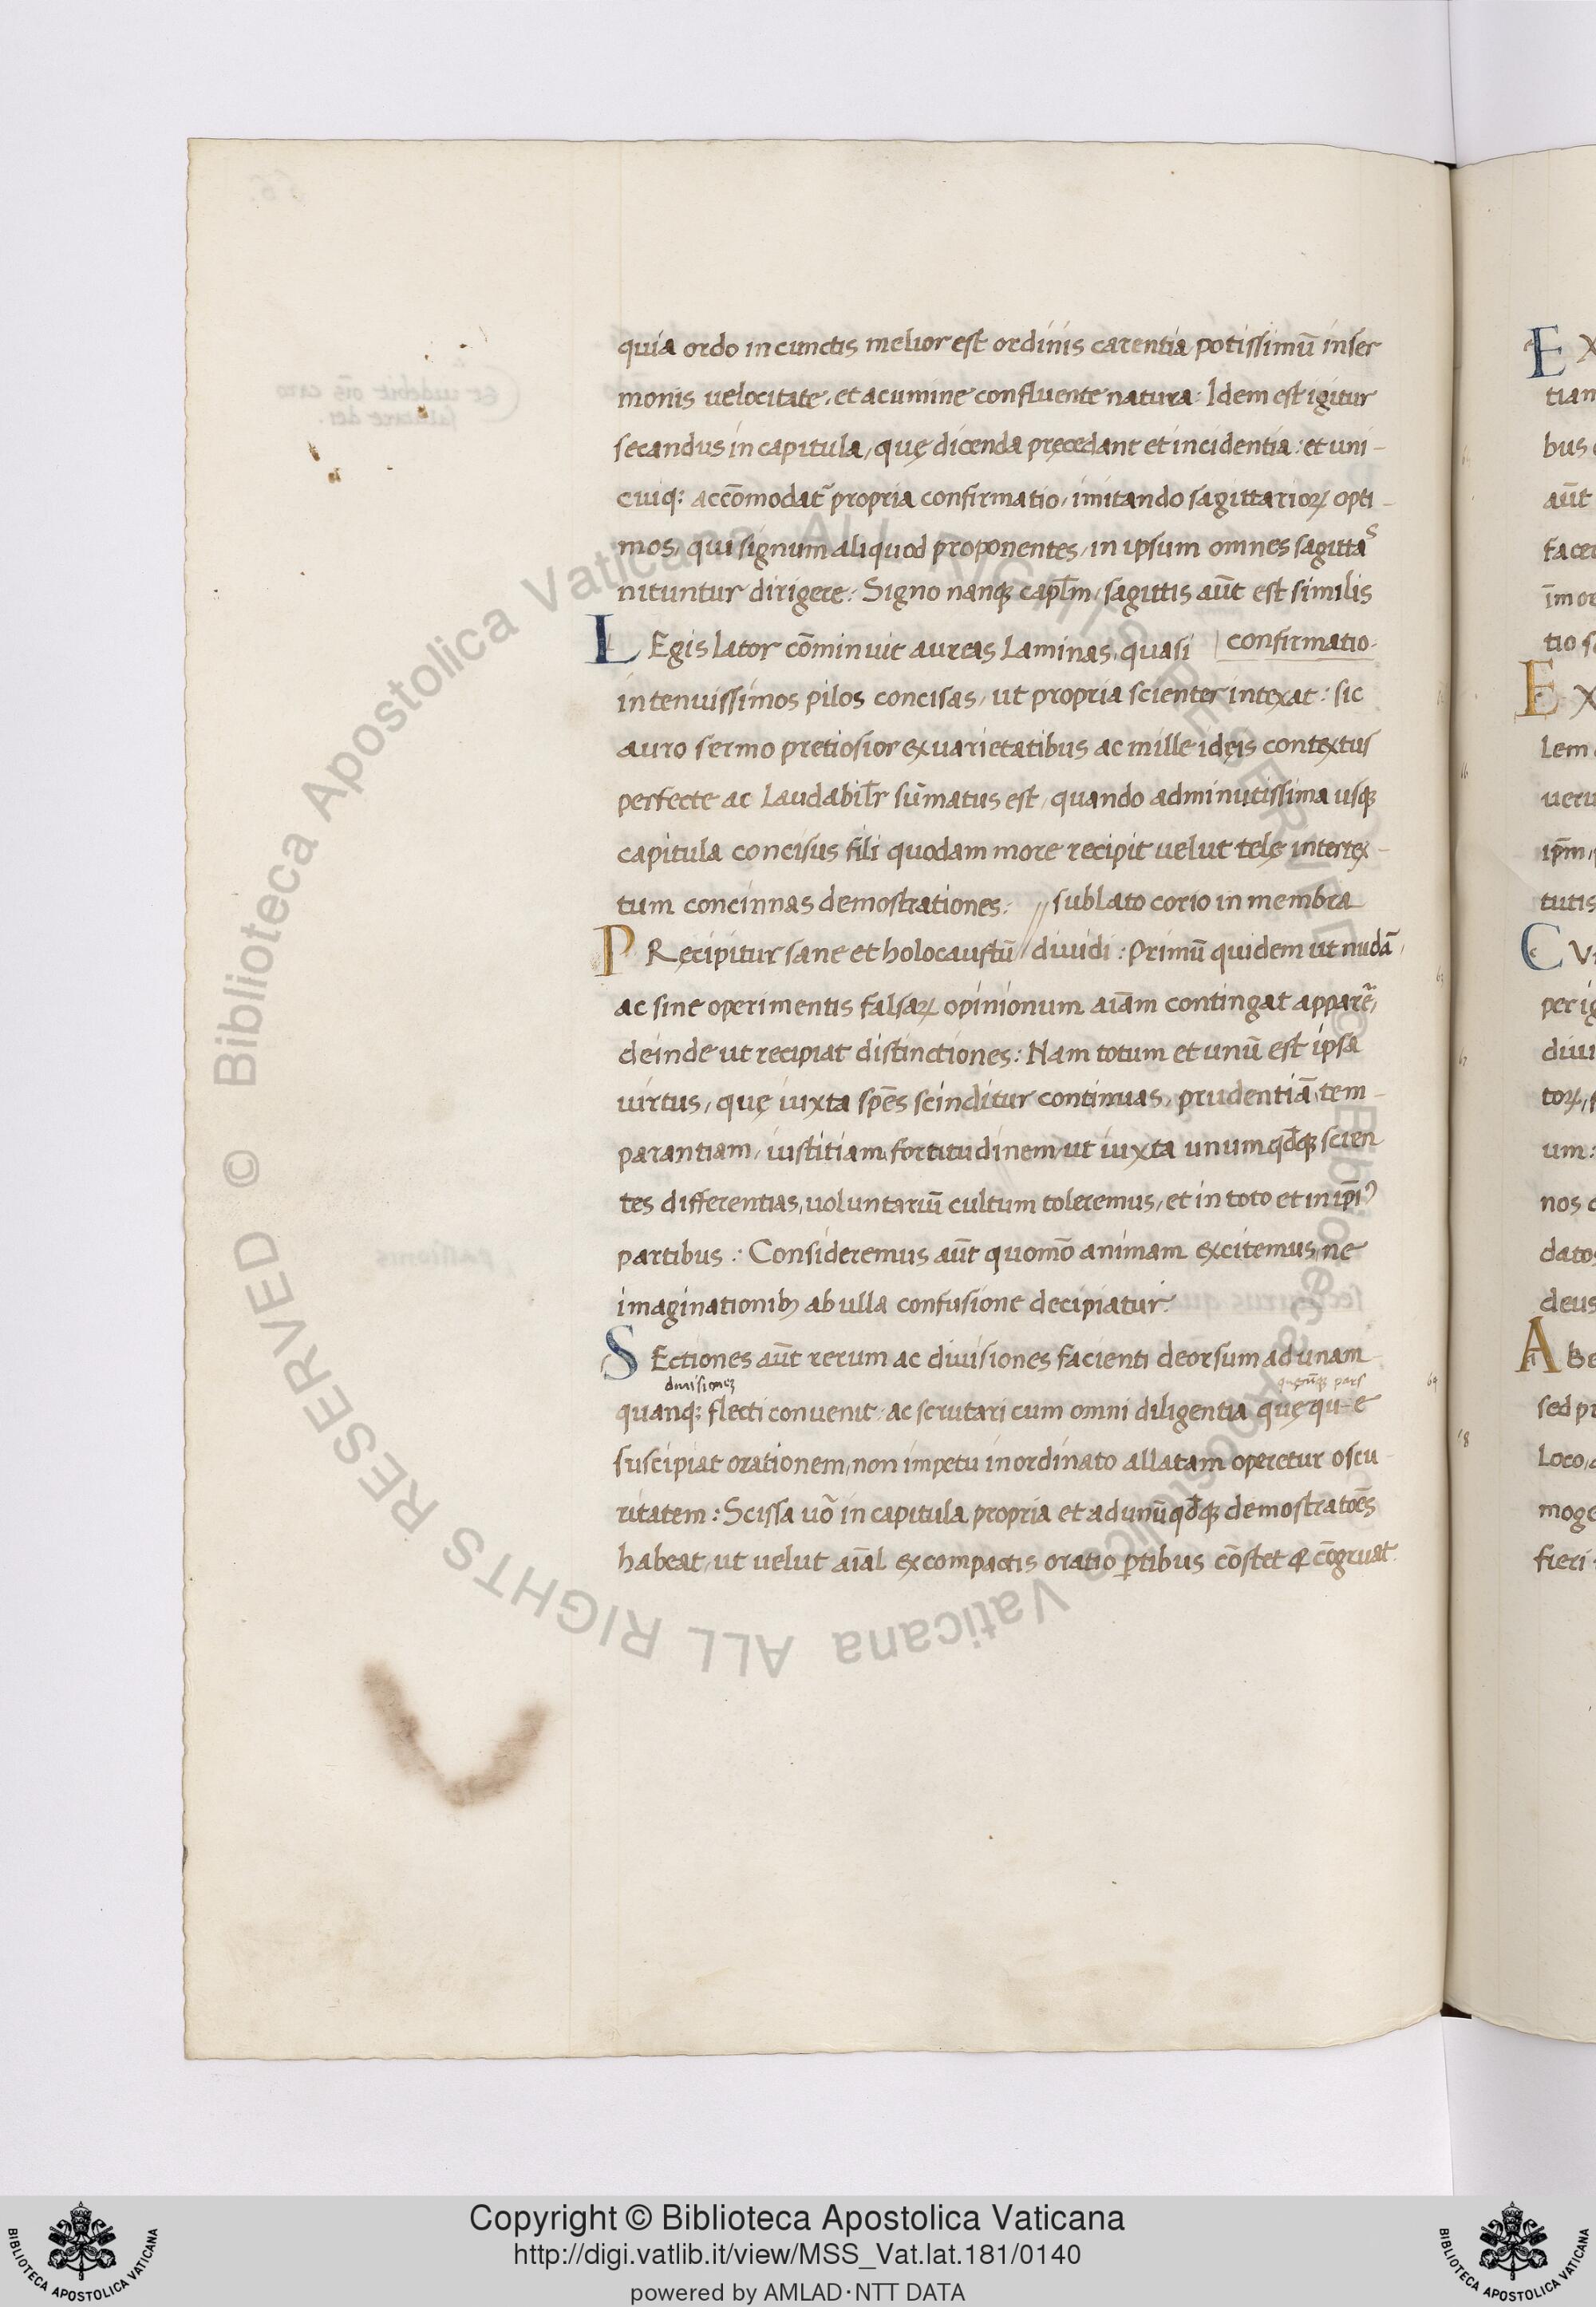 quia ordo in cunctis melior est ordinis carentia, potissimū in ser
monis velocitate, et acumine confluente natura: Idem est igitur
secandus in capitula, quę dicenda pręcedant et incidentia: et uni-
cuiq; accōmodat̄ propria confirmatio, imitando sagittarioꝝ opti-
mos, qui signum aliquod proponentes, in ipsum omnes sagittas
nituntur dirigere: Signo nanqꝫ cap̄lm, sagittis aūt est similis
confirmatio.
LEgis lator cōminuit aureas laminas, quasi
in tenuissimos pilos concisas, ut propria scienter intexat: sic
auro sermo pretiosior ex varietatibus ac mille idęis contextus
perfecte ac laudabilr̄ sūmatus est, quando ad minutissima usqꝫ
capitula concisus fili quodam more recipit velut telę intertex-
tum concinnas demostrationes: // sublato corio in membra
PRęcipitur sane et holocaustū // diuidi: Primū quidem ut nudā,
ac sine operimentis falsaꝝ opinionum aīam contingat apparē,
deinde ut recipiat distinctiones: Nam totum et unū est ipsa
uirtus, quę iuxta spēs scinditur continuas, prudentiā, tem-
parantiam, iustitiam, fortitudinem, ut iuxta unumqd̄qꝫ scien
tes differentias, uoluntariū cultum toleremus, et in toto et in ip̄iꝰ
partibus: Consideremus aūt quomō animam excitemus, ne
imaginationibꝫ ab ulla confusione decipiatur:
SEctiones aūt rerum ac diuisiones facienti deorsum ad unam
diuisionez quęcūqꝫ pars
quanq; flecti convenit, ac scrutari cum omni diligentia quęqu-e
suscipiat orationem, non impetu inordinato allatam operetur oscu-
ritatem: Scissa uō in capitula propria et ad unūqd̄qꝫ demostratōēs
habeat, ut velut aīal ex compactis oratio ꝑtibus cōstet & cōgruat.
Copyright © Biblioteca Apostolica Vaticana
http://digi.vatlib.it/view/MSS_Vat.lat.181/0140
powered by AMLAD·NTT DATA
BIBLIOTECA APOSTOLICA VATICANA
BIBLIOTECA APOSTOLICA VATICANA
© Biblioteca Apostolica Vaticana ALL RIGHTS RESERVED © Biblioteca Apostolica Vaticana ALL RIGHTS RESERVED